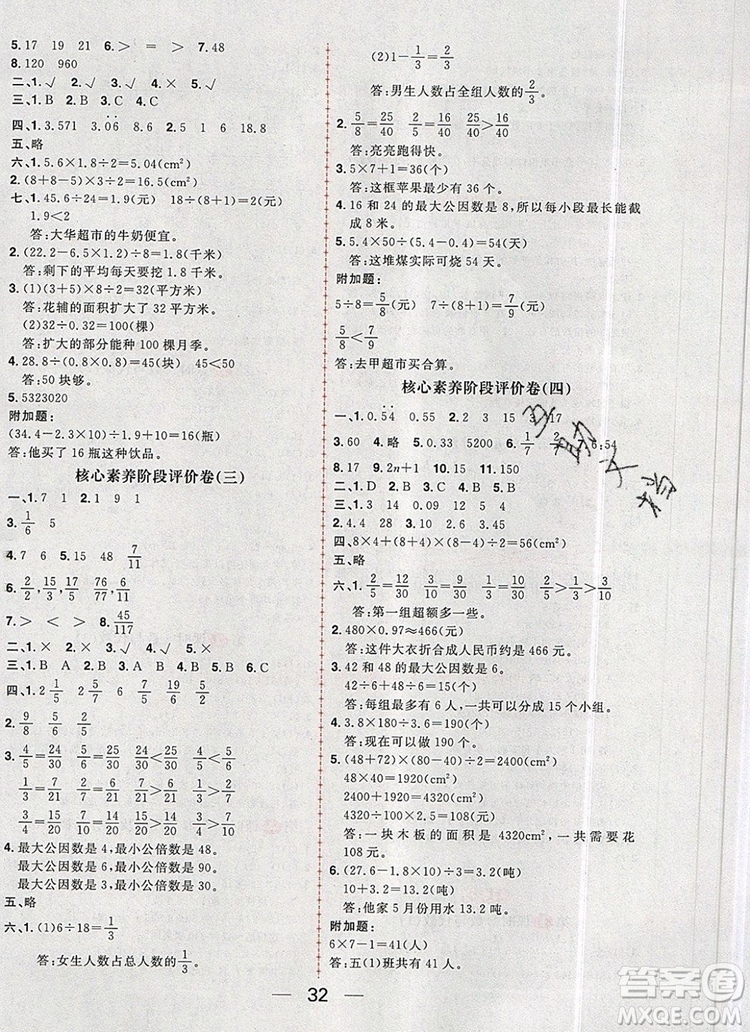 5.17 19 21 6.> = — 7.48
8.120 960
二、1.√ 2.√ 3.√ 4.× 5.√
三、1.B 2.B 3.C 4.C
四、1.3.571 3.06 8.4 2.5 1 6 18.8
五、略
六、1.5.6×1.8÷2=5.04(cm²)
2.(8+8-5)×3÷2=16.5(cm²)
七、1.45.6÷24=1.9(元) 18÷(8+1)=2(元)
1.9<2
答:大华超市的牛奶便宜。
2.(22.5-4.5×1.8)÷8=1.8(千米)
答:剩下的平均每天要挖1.8千米。
3.(1)(3+5)×8÷2=32(平方米)
答:花辅的面积扩大了32平方米。
(2)32÷0.32=100(棵)
答:扩大的部分能种100棵月季。
4.28.8÷(0.8×0.8)=45(块) 45<50
答:50块够。
5.5323020
附加题:
(34.4-2.3×10-1)÷1.9+10=16(瓶)
答:他买了16瓶这种饮品。
核心素养阶段评价卷(三)
一、1.7 1 2.1 9 1
3.1/6 5
4.7 6 5.15 48 7/11
6.2/2 15/15 76/76 6/6
7.> < > < 8.45/117
二、1.× 2.√ 3.√ 4.√
三、1.B A 2.B 3.B 4.A 5.B
四、1.2 1/5 2/7 6 1/5 2/5
2.5/9 6/5 2/5
3.4/5=24/30 5/6=25/30 4/5<5/6
1/3=7/21 2/7=6/21 1/3>2/7
3/4=15/20 7/10=14/20 3/4>7/10
4.最大公因数是4,最小公倍数是48。
最大公因数是6,最小公倍数是90。
最大公因数是3,最小公倍数是30。
五、略
六、1.(1)6÷18=1/3
答:女生人数占总人数的1/3。
(2)1-1/3=2/3
答:男生人数占全组人数的2/3。
2.5/8=25/40 4/5=32/40 25/40>
答:亮亮跑得快。
3.5×7+1=36(个)
答:这框苹果最少有36个。
4.16和24的最大公因数是8,所以每小段最长能截
成8米。
5.5.4×60÷(5.4+0.6)=54(天)
答:这堆煤实际可烧54天。
附加题:
5÷8=5/8(元) 7÷(8+1)=7/9(元)
5/8<7/9
答:去甲超市买合算。
核心素养阶段评价卷(四)
一、1.0.54 0.55 2.2 3 15 3.17
3.60 4.略 5.0.33 5200 6.1/7 2/7 7.6:54
8.17 9.2n+1 10.16
二、1.D 2.C 3.D 4.B
三、1.0.5 10 3.2 1.6 0.1 27.5
2.4.4 28 3.10 2.87
四、8×4+(8+4)×(8-4)÷2=56(cm²)
五、略
六、1.2/5=12/30 1/3=10/30 3/10 2/5>1/3>3/10
答:第一组超额多一些。
2.480×0.97≈466(元)
答:这件大衣折合成人民币约是466元。
3.42和48的最大公因数是6。
42÷6+48÷6=15(个)
答:每组最多有6人,一共可以分成15个小组。
4.3.8×180÷3.6=190(个)
答:现在可以做190个。
5.(48+72)×(80-40)÷2=2400(cm²)
48×40=1920(cm²)
2400+1920=4320(cm²)
4320÷100×2.5=108(元)
答:一块木板的面积是4320cm²,一共需要花
108元。
6.(27.6-1.8×10)÷3=3.2(吨)
10+3.2=13.2(吨)
答:他家5月份用水13.2吨。
附加题:
6×7-1=41(人)
答:五(1)班共有41人。
32
答案圈
MXQE.COM